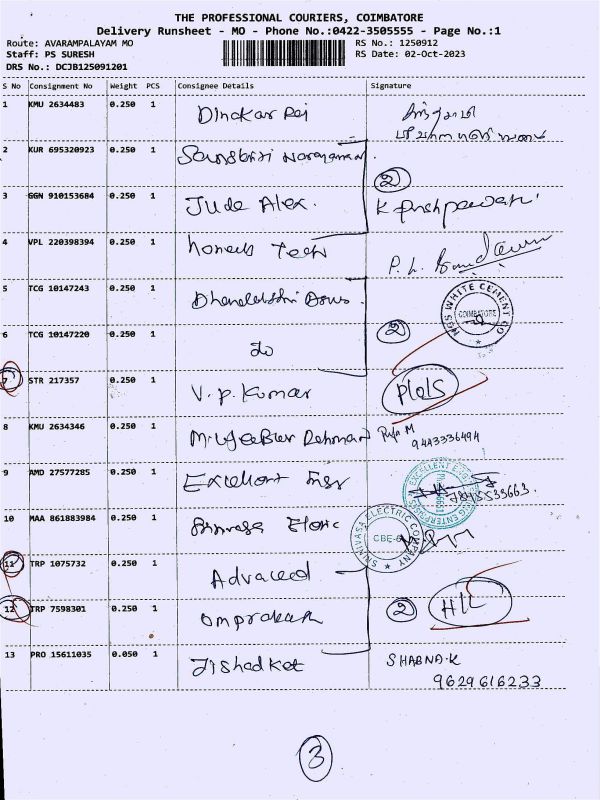 THE PROFESSIONAL COURIERS, COIMBATORE
Delivery Runsheet - MO - Phone No.:0422-3505555 - Page No.:1
Route: AVARAMPALAYAM MO RS No.: 1250912
Staff: PS SURESH RS Date: 02-Oct-2023
DRS No.: DCJB125091201
S No Consignment No Weight PCS Consignee Details Signature
1 KMU 2634483 0.250 1 Dinakar Raj
2 KUR 695320923 0.250 1 Narayanan
②
3 GGN 910153684 0.250 1 Jude Alex. K Pushpavati
4 VPL 220398394 0.250 1 Tech P. L.
5 TCG 10147243 0.250 1 WHITE CEMENT CO COIMBATORE
②
6 TCG 10147220 0.250 1 do
7 STR 217357 0.250 1 V.P. Kumar P|O|S
8 KMU 2634346 0.250 1 Rahman M
9443336494
9 AMD 27577285 0.250 1 Excellent Engg EXCELLENT ENGG ENTERPRISES
7845533663.
10 MAA 861883984 0.250 1 Srinivasa Elctric SRINIVASA ELECTRIC COMPANY CBE-6
11 TRP 1075732 0.250 1 Advaced
12 TRP 7598301 0.250 1 Omprakash ② H|L
13 PRO 15611035 0.050 1 SHABNA.K
9629616233
③